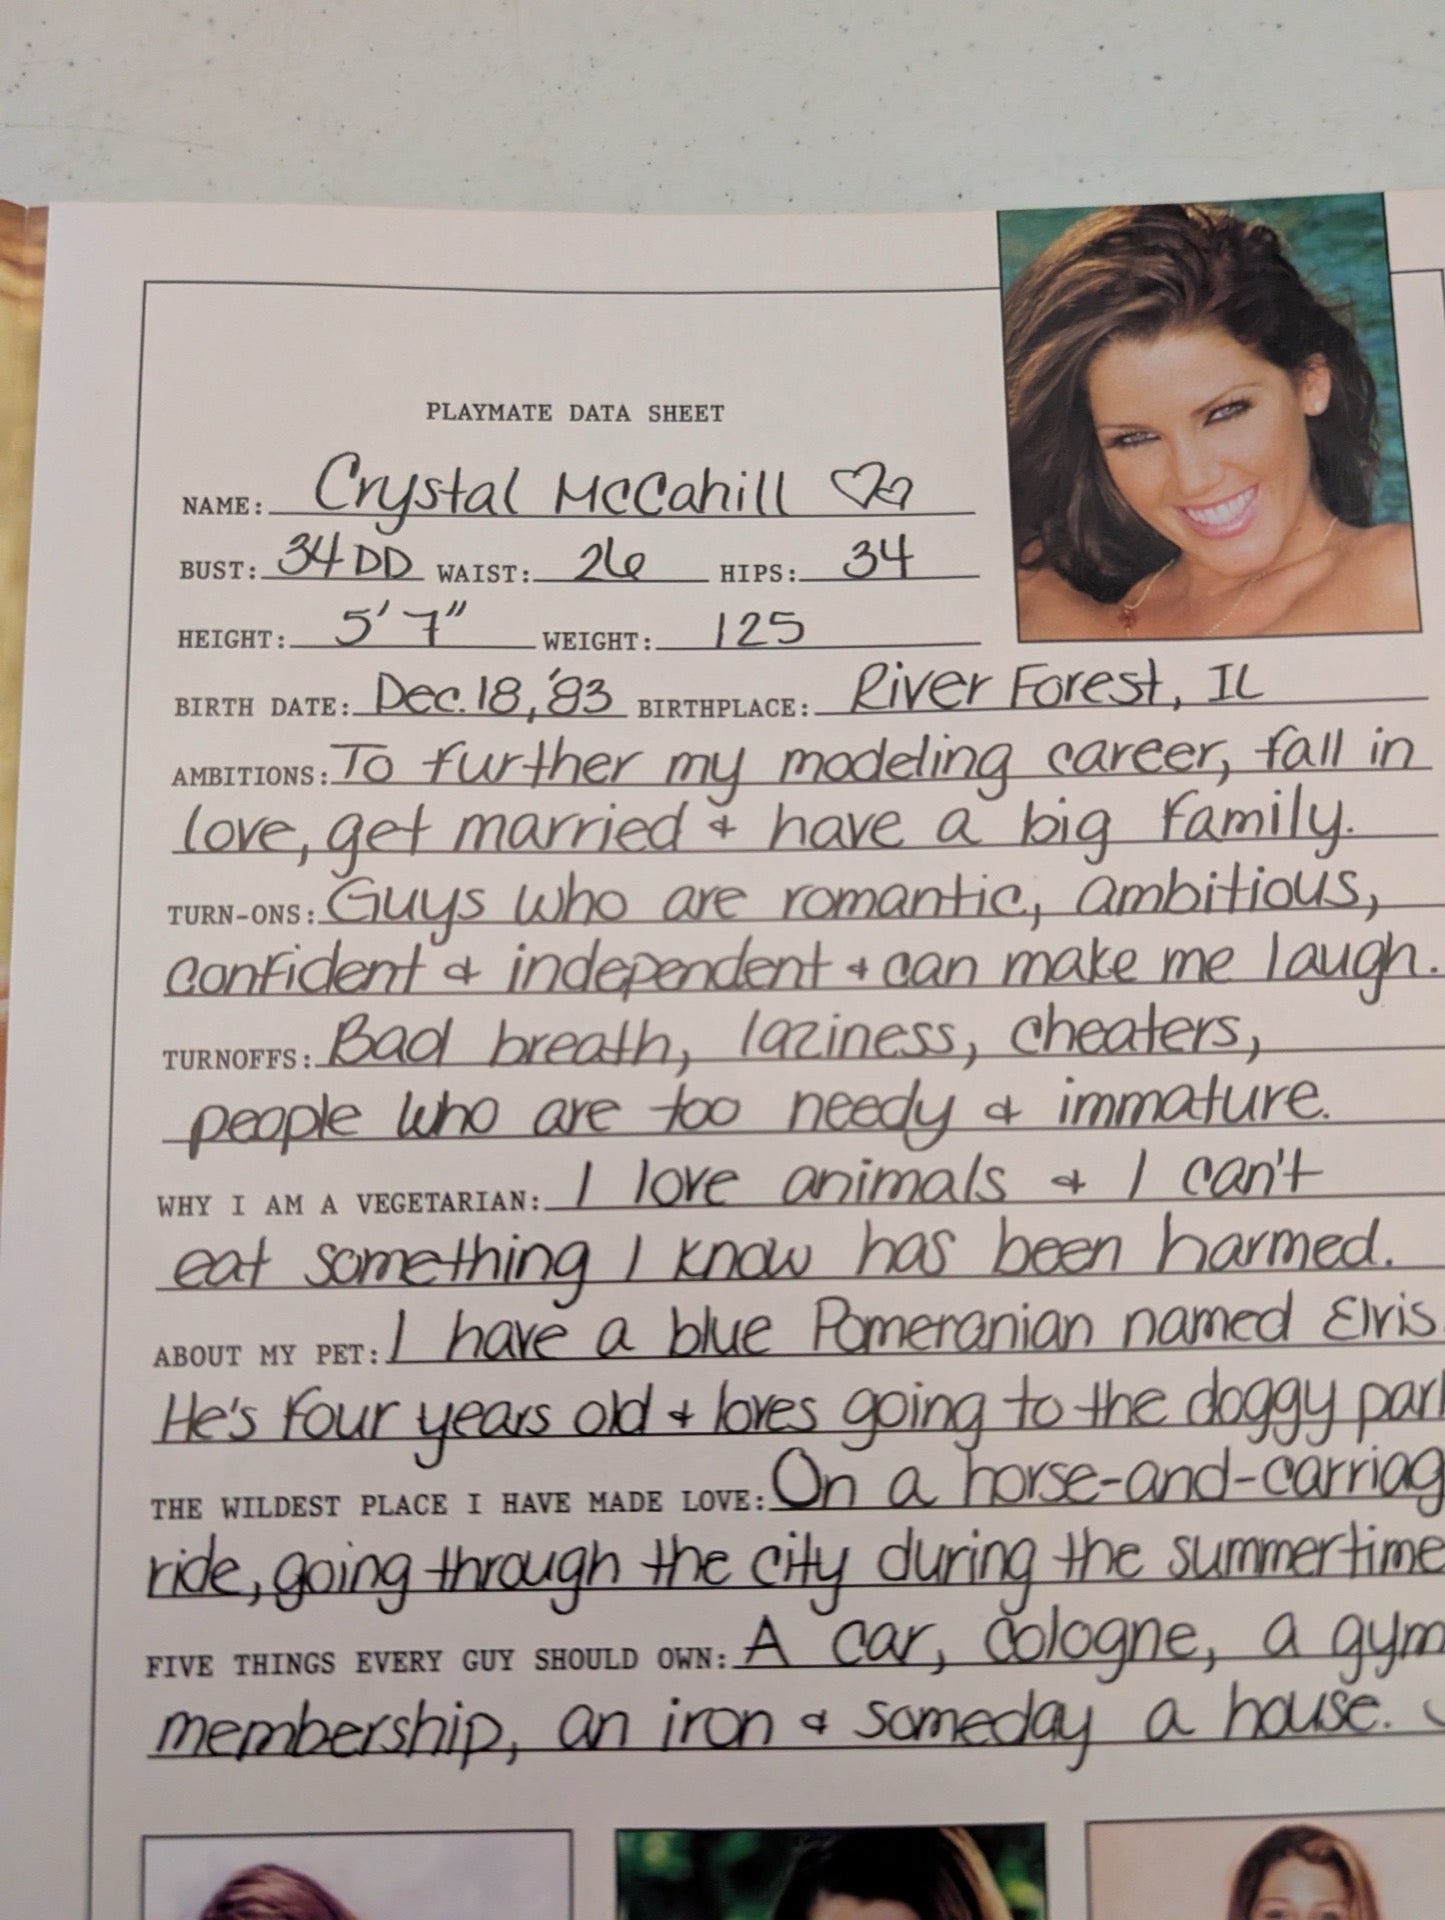 PLAYMATE DATA SHEET
NAME: Crystal McCahill
BUST: 34DD WAIST: 26 HIPS: 34
HEIGHT: 5'7" WEIGHT: 125
BIRTH DATE: Dec. 18, '83 BIRTHPLACE: River Forest, IL
AMBITIONS: To further my modeling career, fall in
love, get married & have a big family.
TURN-ONS: Guys who are romantic, ambitious,
confident & independent & can make me laugh.
TURNOFFS: Bad breath, laziness, cheaters,
people who are too needy & immature.
WHY I AM A VEGETARIAN: I love animals & I can't
eat something I know has been harmed.
ABOUT MY PET: I have a blue Pomeranian named Elvis.
He's four years old & loves going to the doggy par
THE WILDEST PLACE I HAVE MADE LOVE: On a horse-and-carriag
ride, going through the city during the summertime
FIVE THINGS EVERY GUY SHOULD OWN: A car, cologne, a gym
membership, an iron & someday a house.